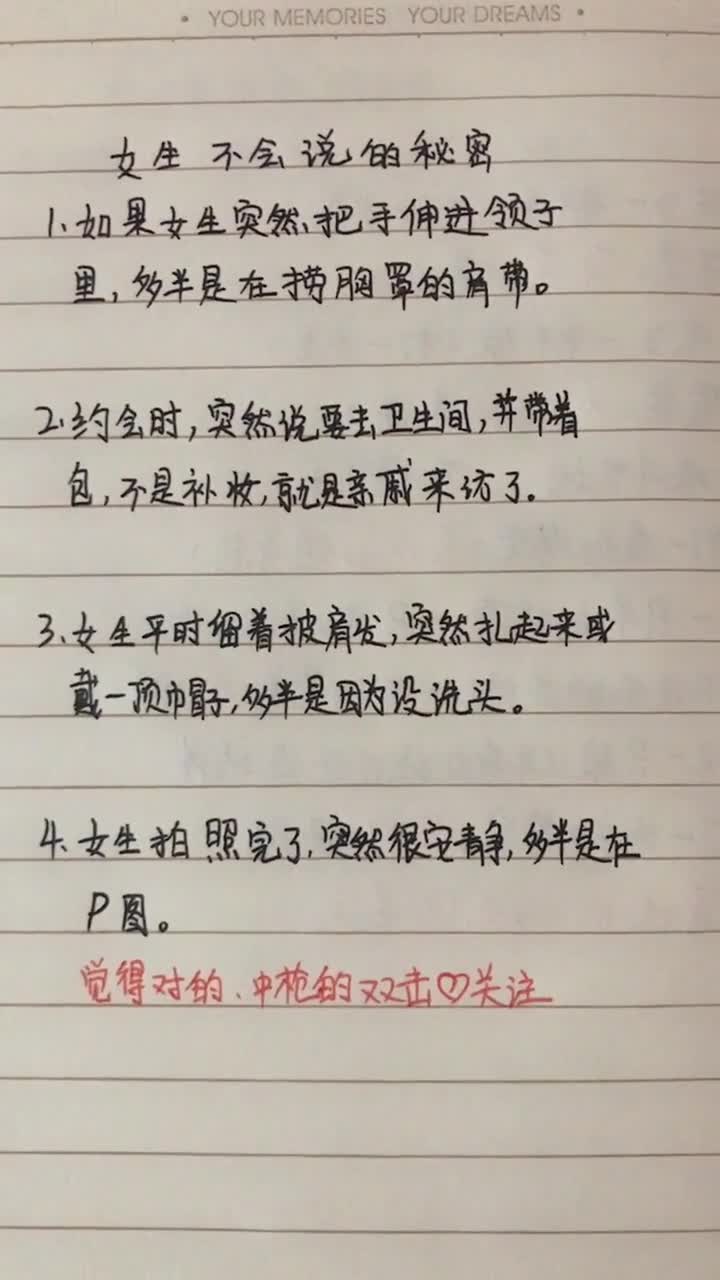 • YOUR MEMORIES YOUR DREAMS •
女生 不会说的秘密
1.如果女生突然把手伸进领子
里,多半是在捞胸罩的肩带。
2.约会时,突然说要去卫生间,并带着
包,不是补妆,就是亲戚来访了.
3.女生平时留着披肩发,突然扎起来或
戴一顶巾冒子,多半是因为没洗头。
4.女生拍照完了,突然很安静,多半是在
P图。
觉得对的、中枪的双击♡关注